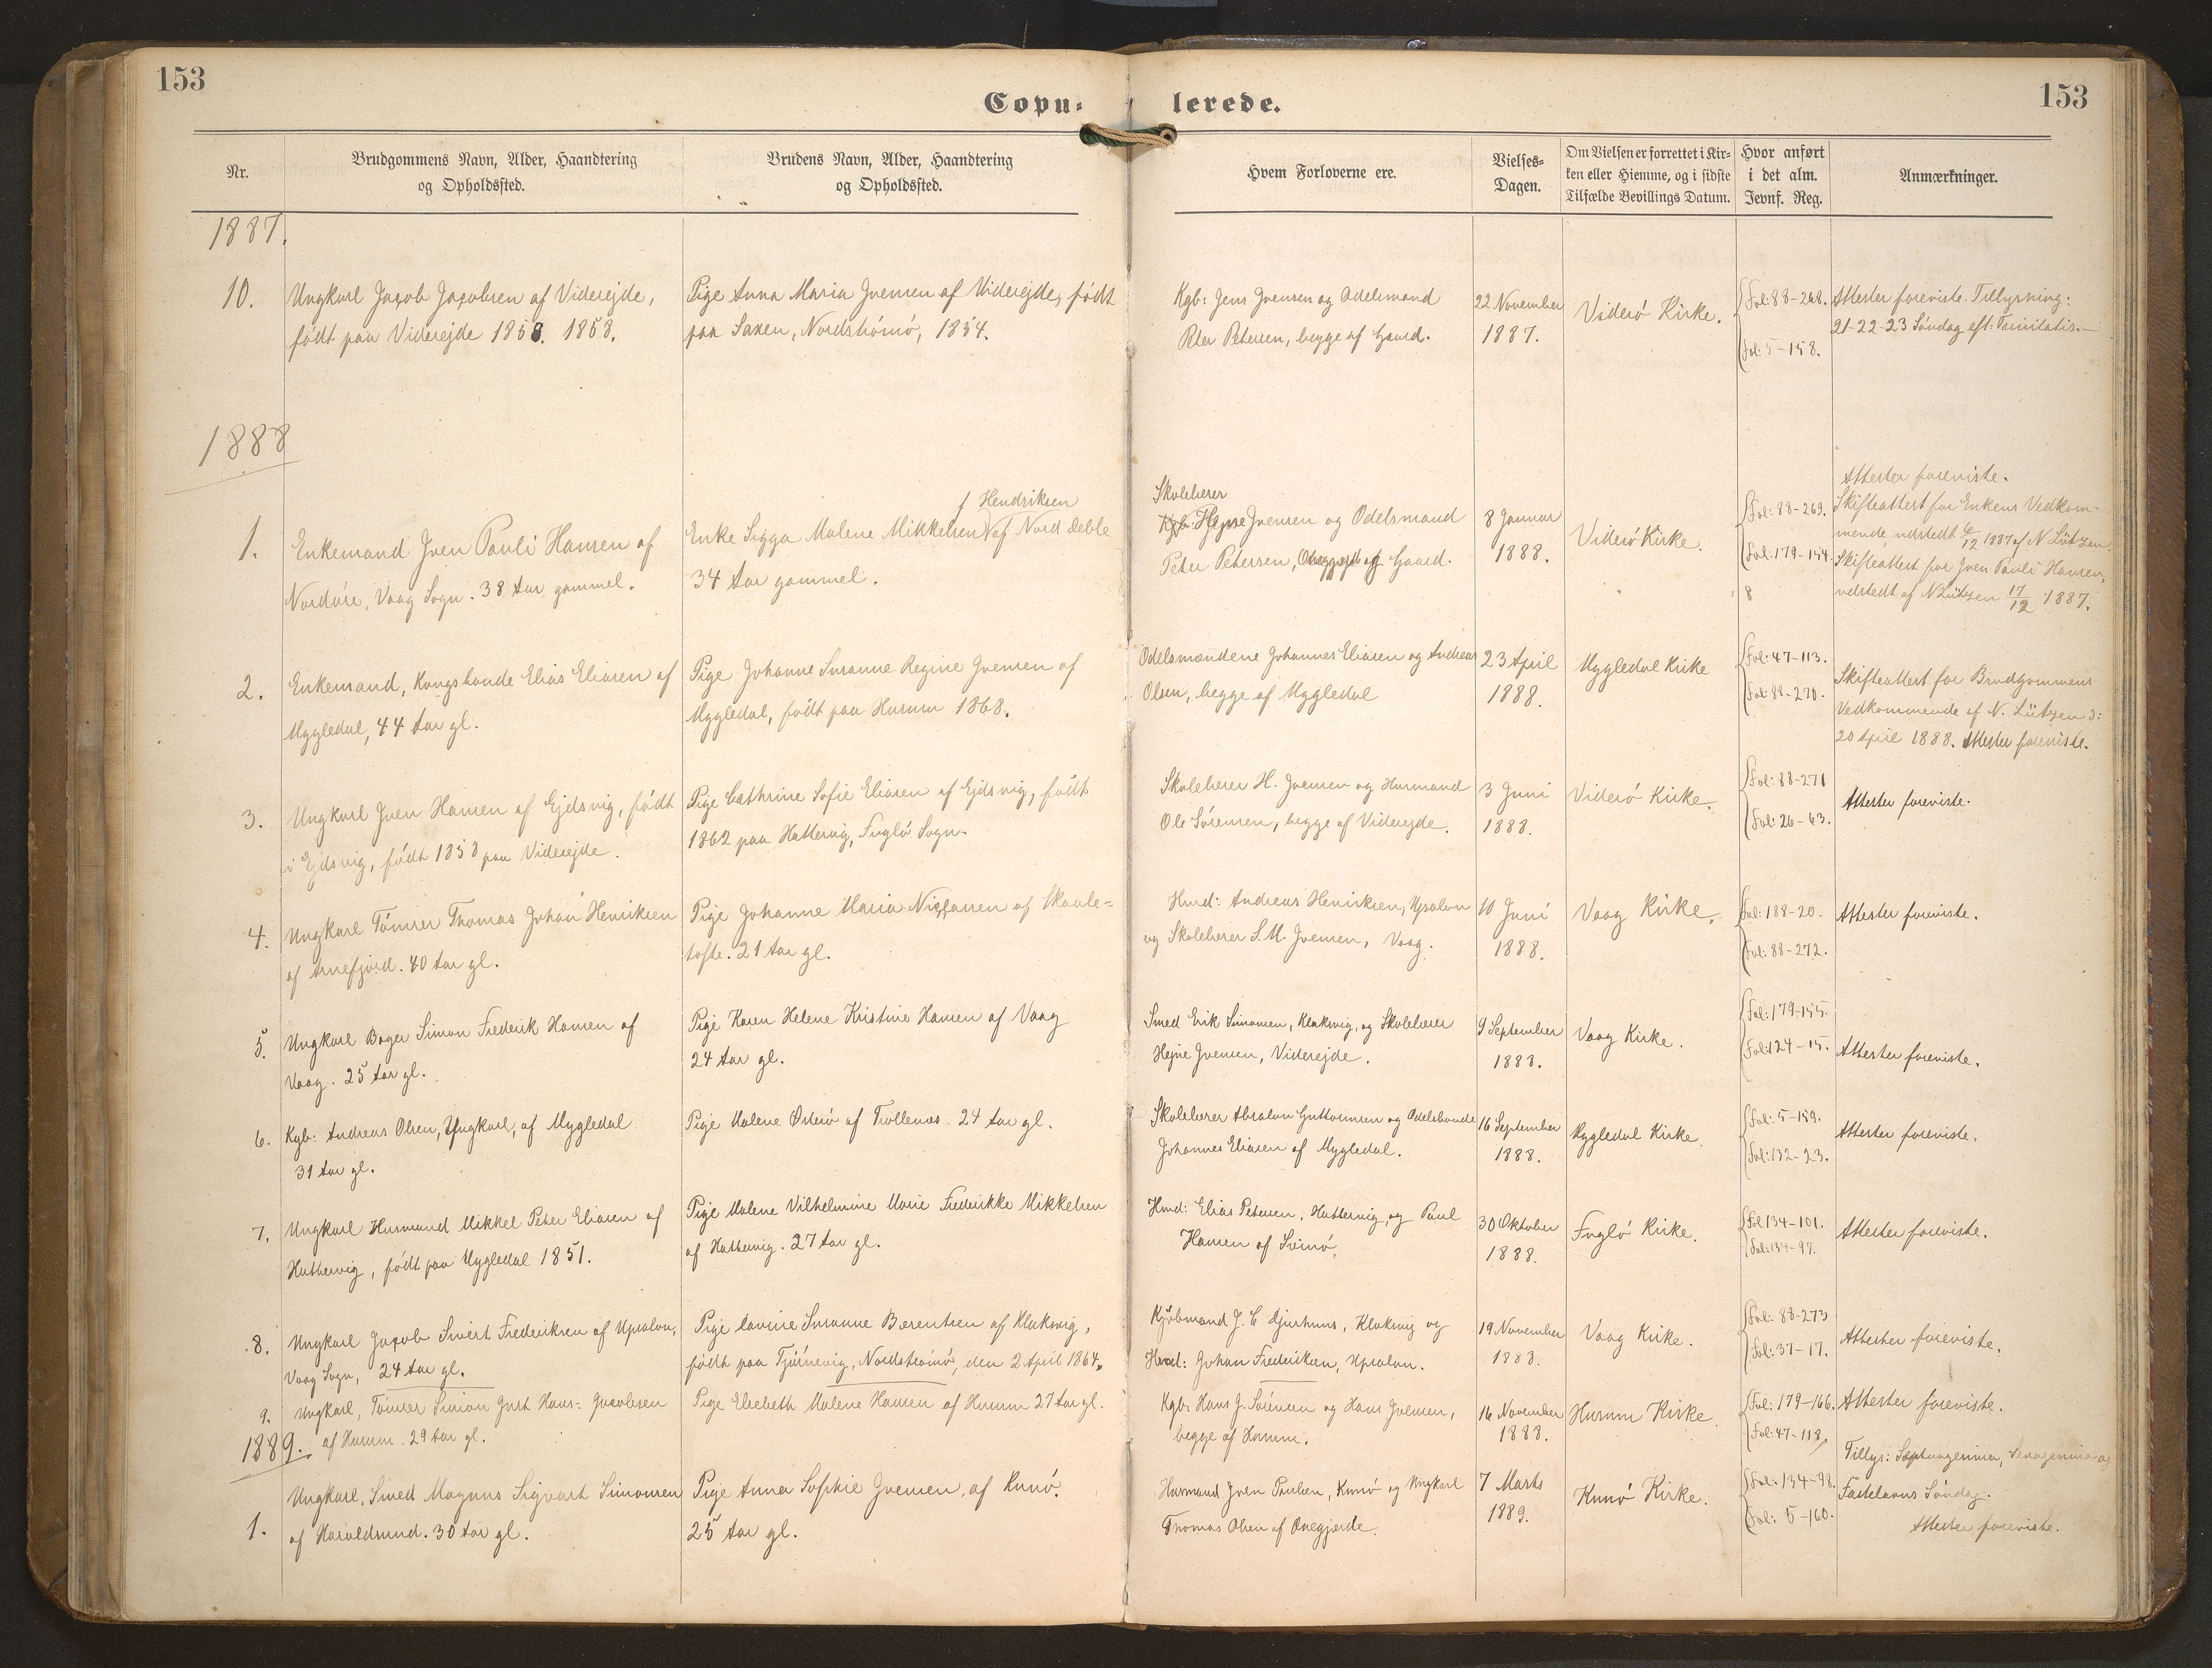 153
153
Copu= lerede.
Nr.
Brudgommens Navn, Alder, Haandtering
og Opholdssted.
Brudens Navn, Alder, Haandtering
og Opholdssted.
Hvem Forloverne ere.
Vielses=
Dagen.
Om Vielsen er forrettet i Kir=
ken eller Hiemme, og i sidste
Tilfælde Bevillings Datum.
Hvor anført
i det alm.
Jevnf. Reg.
Anmærkninger.
1887.
10.
Ungkarl Jacob Jacobsen af Viderejde,
født paa Viderejde 1858. 1858.
Pige Anna Maria Joensen af Viderejde, født
paa Saxen, Nordstrómó, 1854.
Kgb: Jens Joensen og Odelsmand
Peter Petersen, begge af Gaard.
22 November
1887.
Viderö Kirke.
Fol: 88-268.
Fol: 5-158.
Attester foreviste. Tillysning:
21-22-23 Söndag eft: Trinitatis.
1888
1.
Enkemand Joen Pauli Hansen af
Nordöre, Vaag Sogn. 38 Aar gammel.
f Hendriksen
Enke Sigga Malene Mikkelsen af Nord Deble
34 Aar gammel.
Skolelærer
Kgb: Hejne Joensen og Odelsmand
Peter Petersen, af Gaard.
8 Januar
1888.
Viderö Kirke.
Fol: 88-269.
Fol: 179-154
8
Attester foreviste.
Skifteattest for Enkens Vedkom-
mende, udstedt 6/12 1887 af N Lützen.
Skifteattest for Joen Pauli Hansen,
udstedt af N Lützen 17/12 1887.
2.
Enkemand, Kongsbonde Elias Eliasen af
Mygledal, 44 Aar gl.
Pige Johanne Susanne Regine Joensen af
Mygledal, født paa Husum 1868.
Odelsmændene Johannes Eliasen og Andreas
Olsen, begge af Mygledal
23 April
1888.
Mygledal Kirke
Fol: 47-113.
Fol: 88-270.
Skifteattest for Brudgommens
Vedkommende af N. Lützen d:
20 April 1888. Attester foreviste.
3.
Ungkarl Joen Hansen af Ejdsvig, født
i Ejdsvig, født 1858 paa Viderejde.
Pige Cathrine Sofie Eliasen af Ejdsvig, født
1862 paa Hattervig, Fuglö Sogn.
Skolelærer H. Joensen og Husmand
Ole Sörensen, begge af Viderejde.
3 Juni
1888.
Viderö Kirke.
Fol: 88-271
Fol: 26-63.
Attester foreviste.
4.
Ungkarl Tömrer Thomas Johan Henriksen
af Arnefjord. 40 Aar gl.
Pige Johanne Maria Niclasen af Skaale=
tofte. 21 Aar gl.
Hmd: Andreas Henriksen, Upsalon
og Skolelærer S.M. Joensen, Vaag.
10 Juni
1888.
Vaag Kirke.
Fol: 188-20.
Fol: 88-272.
Attester foreviste.
5.
Ungkarl Bager Simon Frederik Hansen af
Vaag. 25 Aar gl.
Pige Karen Helene Kristine Hansen af Vaag
24 Aar gl.
Smed Erik Simonsen, Klaksvig, og Skolelærer
Hejne Joensen, Viderejde.
9 September
1888.
Vaag Kirke.
Fol: 179-155.
Fol: 124-15.
Attester foreviste.
6.
Kgb: Andreas Olsen, Ungkarl, af Mygledal
31 Aar gl.
Pige Malene Österö af Trollenæs. 24 Aar gl.
Skolelærer Absalon Guttormsen og Odelsbonde
Johannes Eliasen af Mygledal.
16 September
1888.
Mygledal Kirke.
Fol: 5-159.
Fol: 132-23.
Attester foreviste.
7.
Ungkarl Husmand Mikkel Peter Eliasen af
Hattervig, født paa Mygledal 1851.
Pige Malene Vilhelmine Marie Frederikke Mikkelsen
af Hattervig. 27 Aar gl.
Hmd: Elias Petersen, Hattervig, og Paul
Hansen af Svinö.
30 Oktober
1888.
Fuglö Kirke.
Fol 134-101.
Fol: 134-97.
Attester foreviste.
8.
Ungkarl Jacob Sivert Frederiksen af Upsalon,
Vaag Sogn, 24 Aar gl.
Pige Lavine Susanne Bærentsen af Klaksvig,
født paa Tjörnevig, Nordströmö, den 2 April 1864.
Kjöbmand J. C Djurhuus, Klaksvig og
Hmd: Johan Frederiksen, Upsalon.
19 November
1888.
Vaag Kirke.
Fol: 88-273
Fol: 37-17.
Attester foreviste.
9.
Ungkarl, Tömrer Simon Just Hans= Jacobsen
af Husum. 29 Aar gl.
Pige Elsebeth Malene Hansen af Husum 27 Aar gl.
Kgb: Hans J. Sörensen og Hans Joensen,
begge af Husum.
16 November
1888.
Husum Kirke.
Fol: 179-166.
Fol: 47-118,
Attester foreviste.
1889.
1.
Ungkarl, Smed Magnus Sigvart Simonsen
af Haraldsund. 30 Aar gl.
Pige Anna Sophie Joensen, af Kunö.
25 Aar gl.
Husmand Joen Paulsen, Kunö og Ungkarl
Thomas Olsen af Önegjerde.
7 Marts
1889.
Kunö Kirke.
Fol: 134-98.
Fol: 5-160.
Tillys: Septuagesima, Sexagesima og
Fastelavns Söndag.
Attester foreviste.